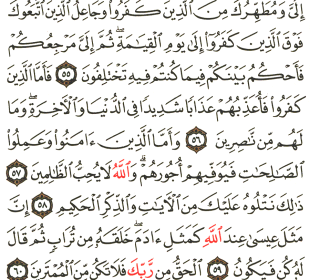 إِلَىَّ وَمُطَهِّرُكَ مِنَ ٱلَّذِينَ كَفَرُوا۟ وَجَاعِلُ ٱلَّذِينَ ٱتَّبَعُوكَ
فَوْقَ ٱلَّذِينَ كَفَرُوٓا۟ إِلَىٰ يَوْمِ ٱلْقِيَـٰمَةِ ۖ ثُمَّ إِلَىَّ مَرْجِعُكُمْ
فَأَحْكُمُ بَيْنَكُمْ فِيمَا كُنتُمْ فِيهِ تَخْتَلِفُونَ ٥٥ فَأَمَّا ٱلَّذِينَ
كَفَرُوا۟ فَأُعَذِّبُهُمْ عَذَابًا شَدِيدًا فِى ٱلدُّنْيَا وَٱلْـَٔاخِرَةِ وَمَا
لَهُم مِّن نَّـٰصِرِينَ ٥٦ وَأَمَّا ٱلَّذِينَ ءَامَنُوا۟ وَعَمِلُوا۟
ٱلصَّـٰلِحَـٰتِ فَيُوَفِّيهِمْ أُجُورَهُمْ ۗ وَٱللَّهُ لَا يُحِبُّ ٱلظَّـٰلِمِينَ ٥٧
ذَٰلِكَ نَتْلُوهُ عَلَيْكَ مِنَ ٱلْـَٔايَـٰتِ وَٱلذِّكْرِ ٱلْحَكِيمِ ٥٨ إِنَّ
مَثَلَ عِيسَىٰ عِندَ ٱللَّهِ كَمَثَلِ ءَادَمَ ۖ خَلَقَهُۥ مِن تُرَابٍ ثُمَّ قَالَ
لَهُۥ كُن فَيَكُونُ ٥٩ ٱلْحَقُّ مِن رَّبِّكَ فَلَا تَكُن مِّنَ ٱلْمُمْتَرِينَ ٦٠